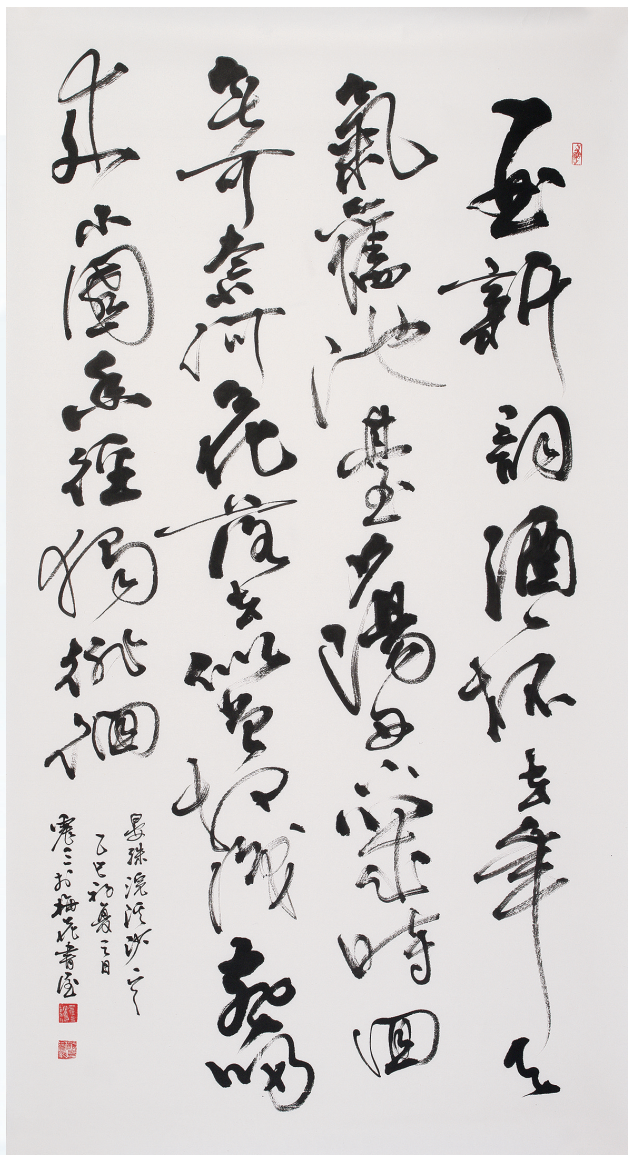 一曲新詞酒一杯去年天
氣舊池臺夕陽西下幾時回
無可奈何花落去似曾相識燕歸
來小園香徑獨徘徊
晏殊浣溪沙一
乙巳初夏之日
於梅花書屋